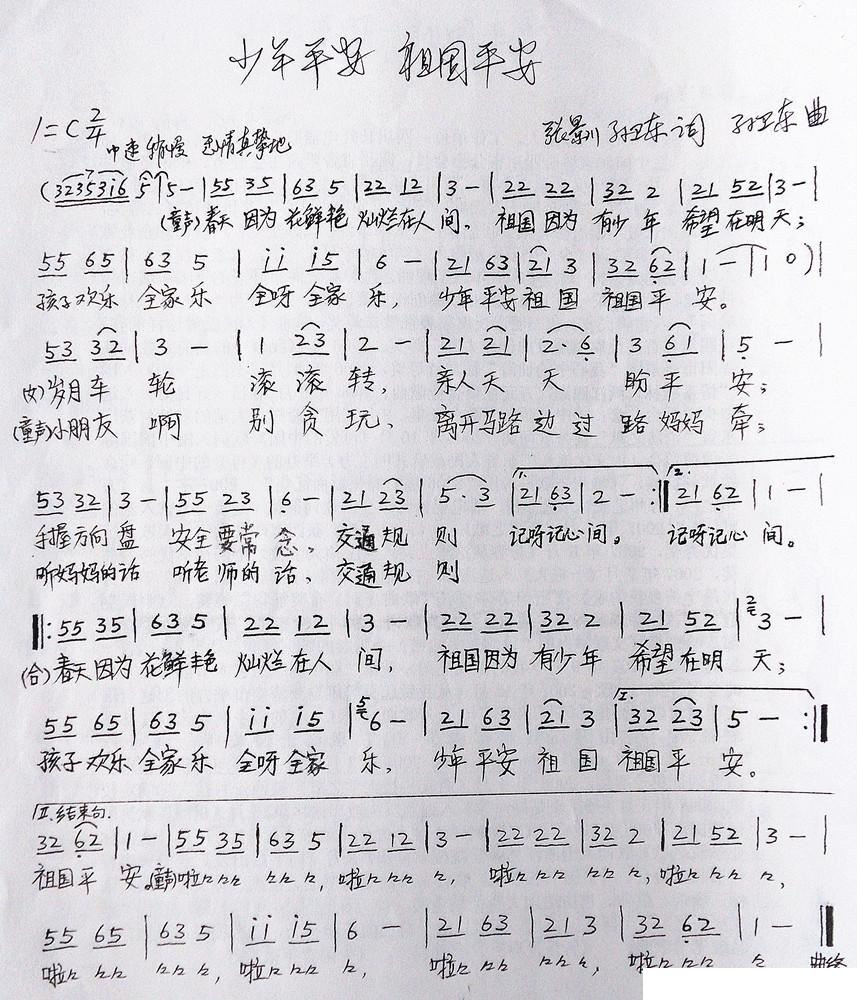 少年平安 祖国平安
1=C 2/4 中速稍慢 感情真挚地 张景川 孙卫东词 孙卫东曲
(3235316 5 | 5 - | 55 35 | 63 5 | 22 12 | 3 - | 22 22 | 32 2 | 21 52 | 3 - |
(童声)春天 因为 花鲜艳 灿烂在人 间, 祖国因为 有少 年 希望在明天;
55 65 | 63 5 | ii i5 | 6 - | 21 63 | 21 3 | 32 62 | 1 - | 1 0) |
孩子欢乐 全家 乐 全呀全家 乐, 少年平安祖 国 祖国平 安。
53 32 | 3 - | 1 23 | 2 - | 21 21 | 2· 6 | 3 61 | 5 - |
(女)岁月车 轮 滚 滚 转, 亲人天 天 盼 平 安;
(童声)小朋友 啊 别 贪 玩, 离开马路 边 过 路 妈妈 牵;
53 32 | 3 - | 55 23 | 6 - | 21 23 | 5· 3 | 1. 21 63 | 2 - :|| 2. 21 62 | 1 - |
手握方向 盘 安全要常 念, 交通规 则 记呀记心间。 记呀记心 间。
听妈妈的话 听老师的 话, 交通规 则
||: 55 35 | 63 5 | 22 12 | 3 - | 22 22 | 32 2 | 21 52 | 2 3 - |
(合)春天因为 花鲜艳 灿烂在人 间, 祖国因为 有少年 希望在明 天;
55 65 | 63 5 | ii i5 | 5 6 - | 21 63 | 21 3 | I. 32 23 | 5 - :||
孩子欢乐 全家乐 全呀全家 乐, 少年平安 祖 国 祖国平 安。
II.结束句.
32 62 | 1 - | 55 35 | 63 5 | 22 12 | 3 - | 22 22 | 32 2 | 21 52 | 3 - |
祖国平 安。(童声)啦
55 65 | 63 5 | ii i5 | 6 - | 21 63 | 21 3 | 32 62 | 1 - ||
啦 啦 啦 啦 曲终